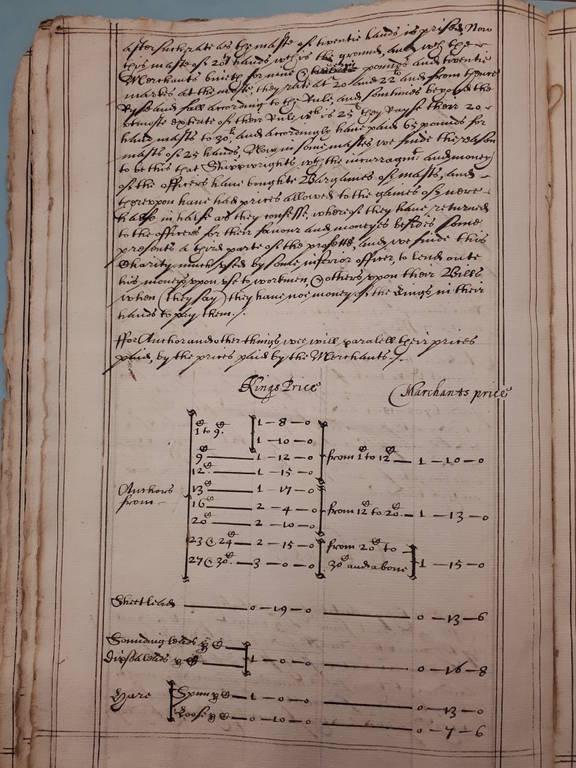 after such rate as the maste of twentie hands is prised, Now
this maste of 20 hands with the ground, and with the
Merchants bineth for nine pounds and twentie
markes at the moste, they rate at 20 and 22 and from thence
Ryse and fall according to the Rule, and somtimes beyond the
utmoste extente of their Rule, is 25 they rayse their 20
hand maste to 30 and accordingly have paid 65 pounds for
masts of 25 hands, Now in some mastes we finde the reason
to be this that Shippwrights, with the incurragmt and money
of the officers have bought Bargaines of masts, and
thereupon have had prices allowed to the gaines of
halfe in halfe as they confesse, whereof they have returned
to the officers for their favour and moneyes besides some
presents a third parte of the profitts, and we finde this
Charity much used by some inferior officers to lend oute
his moneys upon use to workmen & others upon their Bills
when (they say) they have noe money of the Kings in their
hands to pay them.
ffor Anchors and other things, wee will paralell their prices
paid, by the prices paid by the Merchants.
Kings Price Marchants price
1 to 9 1 – 8 – 0
1 – 10 – 0
9 1 – 12 – 0 from 1 to 12 1 – 10 – 0
12 1 – 15 – 0
Anchors from 13 1 – 17 – 0
16 2 – 4 – 0 from 12 to 20 1 – 13 – 0
20 2 – 10 – 0
23 & 24 2 – 15 – 0 from 20 to
27 & 30 3 – 0 – 0 30 and above 1 – 15 – 0
Sheet lead 0 – 19 – 0 0 – 13 – 6
Sounding leads
Dipsea leads 1 – 0 – 0 0 – 16 – 8
Yarne Spun 1 – 0 – 0 0 – 13 – 0
Loose 0 – 10 – 0 0 – 7 – 6